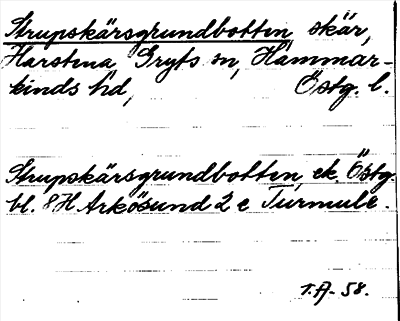 Strupskärsgrundbotten, skär,
Harstena, Gryts sn, Hammar-
kinds hd, Östg. l.
Strupskärsgrundbotten, ek. Östg.
bl. 8H Arkösund 2 e Turmulé.
T.A. 58.